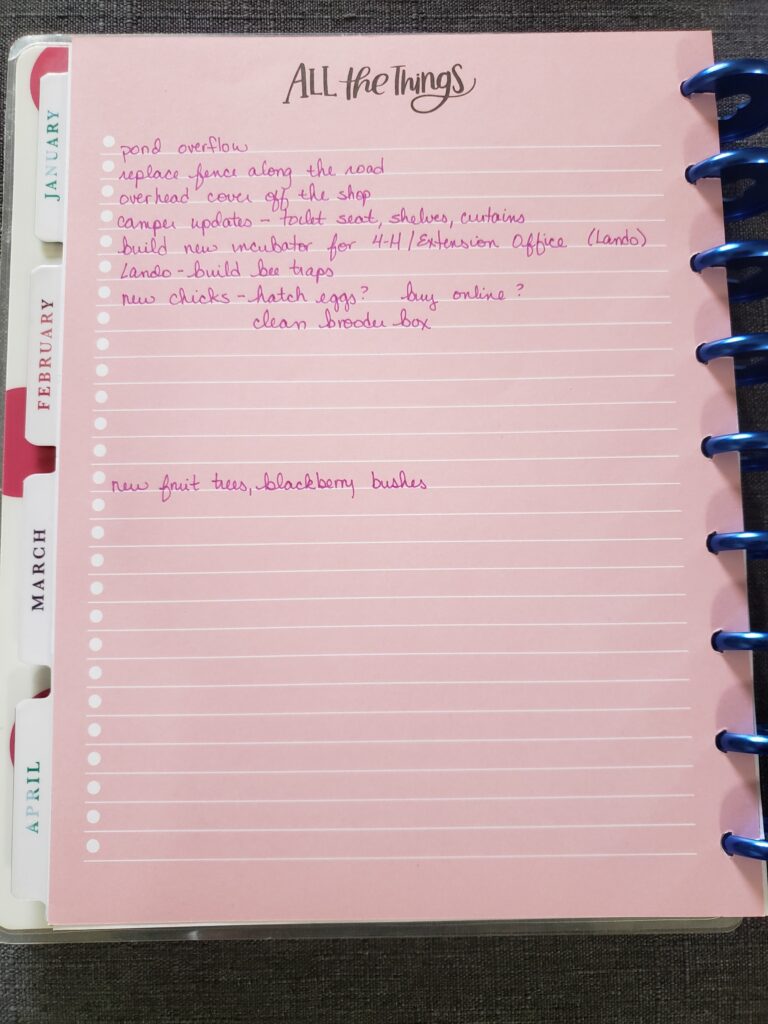 ALL the Things
JANUARY
pond overflow
replace fence along the road
overhead cover off the shop
camper updates - toilet seat, shelves, curtains
build new incubator for 4-H/Extension Office (Lando)
Lando - build bee traps
new chicks - hatch eggs? buy online?
clean brooder box
FEBRUARY
new fruit trees, blackberry bushes
MARCH
APRIL